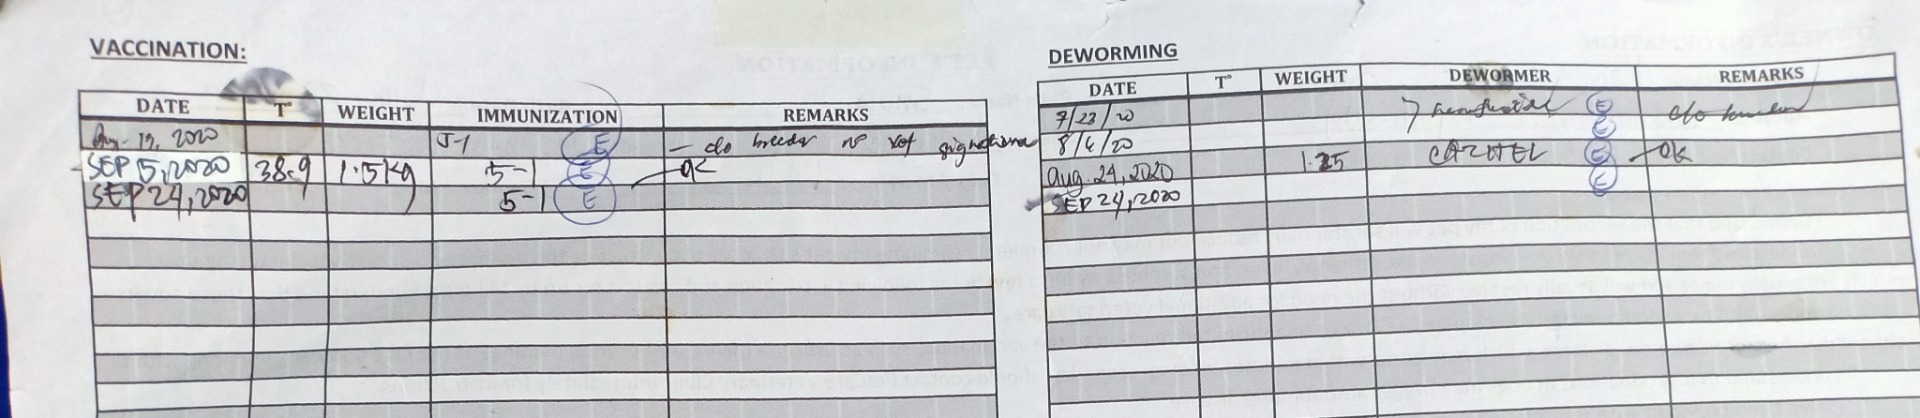 VACCINATION:
DATE T° WEIGHT IMMUNIZATION REMARKS
2020 E - c/o breeder no vet
SEP 5, 2020 38.9 1.5 Kg 5-1 E OK
SEP 24, 2020 5-1 E
DEWORMING
DATE T° WEIGHT DEWORMER REMARKS
7/23/20 E c/o
8/6/20 E
Aug. 24, 2020 1.25 E OK
SEP 24, 2020 E